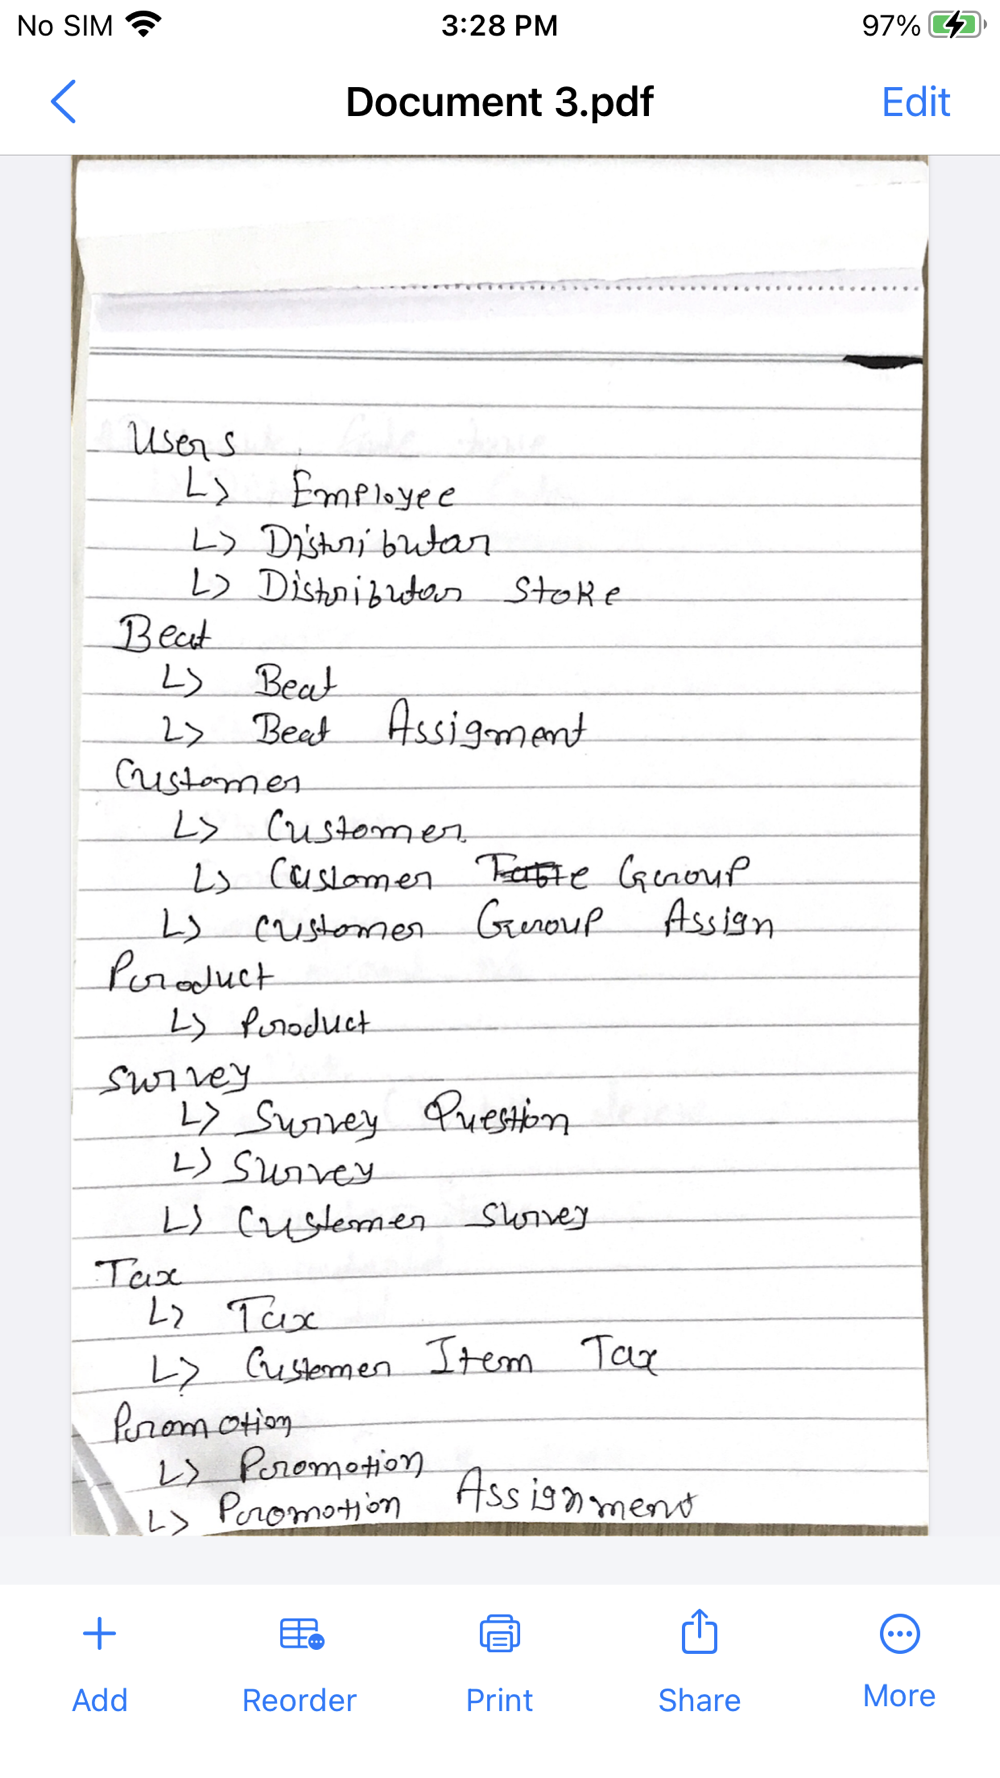 No SIM 3:28 PM 97%
Document 3.pdf Edit
Users
↳ Employee
↳ Distributor
↳ Distributor Stoke
Beat
↳ Beat
↳ Beat Assigment
Customer
↳ Customer
↳ Customer Group
↳ Customer Group Assign
Product
↳ Product
Survey
↳ Survey Question
↳ Survey
↳ Customer Survey
Tax
↳ Tax
↳ Customer Item Tax
Promotion
↳ Promotion
↳ Promotion Assignment
Add Reorder Print Share More